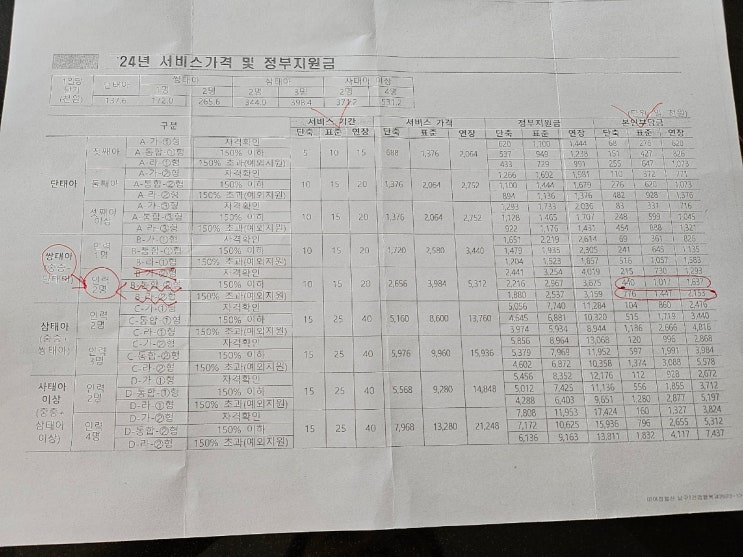 '24년 서비스가격 및 정부지원금
1인당 단가 (천원) 단태아 쌍태아 삼태아 사태아 이상
1명 2명 2명 3명 2명 4명
137.6 172.0 265.6 344.0 398.4 371.2 531.2
(단위: 일, 천원)
구분 서비스 기간 서비스 가격 정부지원금 본인부담금
단축 표준 연장 단축 표준 연장 단축 표준 연장 단축 표준 연장
단태아 첫째아 A-가-①형 자격확인 5 10 15 688 1,376 2,064 620 1,100 1,444 68 276 620
A-통합-①형 150% 이하 537 949 1,238 151 427 826
A-라-①형 150% 초과(예외지원) 433 729 991 255 647 1,073
둘째아 A-가-②형 자격확인 10 15 20 1,376 2,064 2,752 1,266 1,692 1,981 110 372 771
A-통합-②형 150% 이하 1,100 1,444 1,679 276 620 1,073
A-라-②형 150% 초과(예외지원) 894 1,136 1,376 482 928 1,376
셋째아 이상 A-가-③형 자격확인 10 15 20 1,376 2,064 2,752 1,293 1,733 2,036 83 331 716
A-통합-③형 150% 이하 1,128 1,465 1,707 248 599 1,045
A-라-③형 150% 초과(예외지원) 922 1,176 1,431 454 888 1,321
쌍태아 (중증+단태아) 인력 1명 B-가-①형 자격확인 10 15 20 1,720 2,580 3,440 1,651 2,219 2,614 69 361 826
B-통합-①형 150% 이하 1,479 1,935 2,305 241 645 1,135
B-라-①형 150% 초과(예외지원) 1,204 1,523 1,857 516 1,057 1,583
인력 2명 B-가-②형 자격확인 10 15 20 2,656 3,984 5,312 2,441 3,254 4,019 215 730 1,293
B-통합-②형 150% 이하 2,216 2,967 3,675 440 1,017 1,637
B-라-②형 150% 초과(예외지원) 1,880 2,537 3,159 776 1,447 2,153
삼태아 (중증+쌍태아) 인력 2명 C-가-①형 자격확인 15 25 40 5,160 8,600 13,760 5,056 7,740 11,284 104 860 2,416
C-통합-①형 150% 이하 4,545 6,881 10,320 515 1,719 3,440
C-라-①형 150% 초과(예외지원) 3,974 5,934 8,944 1,186 2,666 4,816
인력 3명 C-가-②형 자격확인 15 25 40 5,976 9,960 15,936 5,856 8,964 13,068 120 996 2,868
C-통합-②형 150% 이하 5,379 7,969 11,952 597 1,991 3,984
C-라-②형 150% 초과(예외지원) 4,602 6,872 10,358 1,374 3,088 5,578
사태아 이상 (중증+삼태아 이상) 인력 2명 D-가-①형 자격확인 15 25 40 5,568 9,280 14,848 5,456 8,352 12,176 112 928 2,672
D-통합-①형 150% 이하 5,012 7,425 11,136 556 1,855 3,712
D-라-①형 150% 초과(예외지원) 4,288 6,403 9,651 1,280 2,877 5,197
인력 4명 D-가-②형 자격확인 15 25 40 7,968 13,280 21,248 7,808 11,953 17,424 160 1,327 3,824
D-통합-②형 150% 이하 7,172 10,625 15,936 796 2,655 5,312
D-라-②형 150% 초과(예외지원) 6,136 5,163 13,811 1,832 4,117 7,437